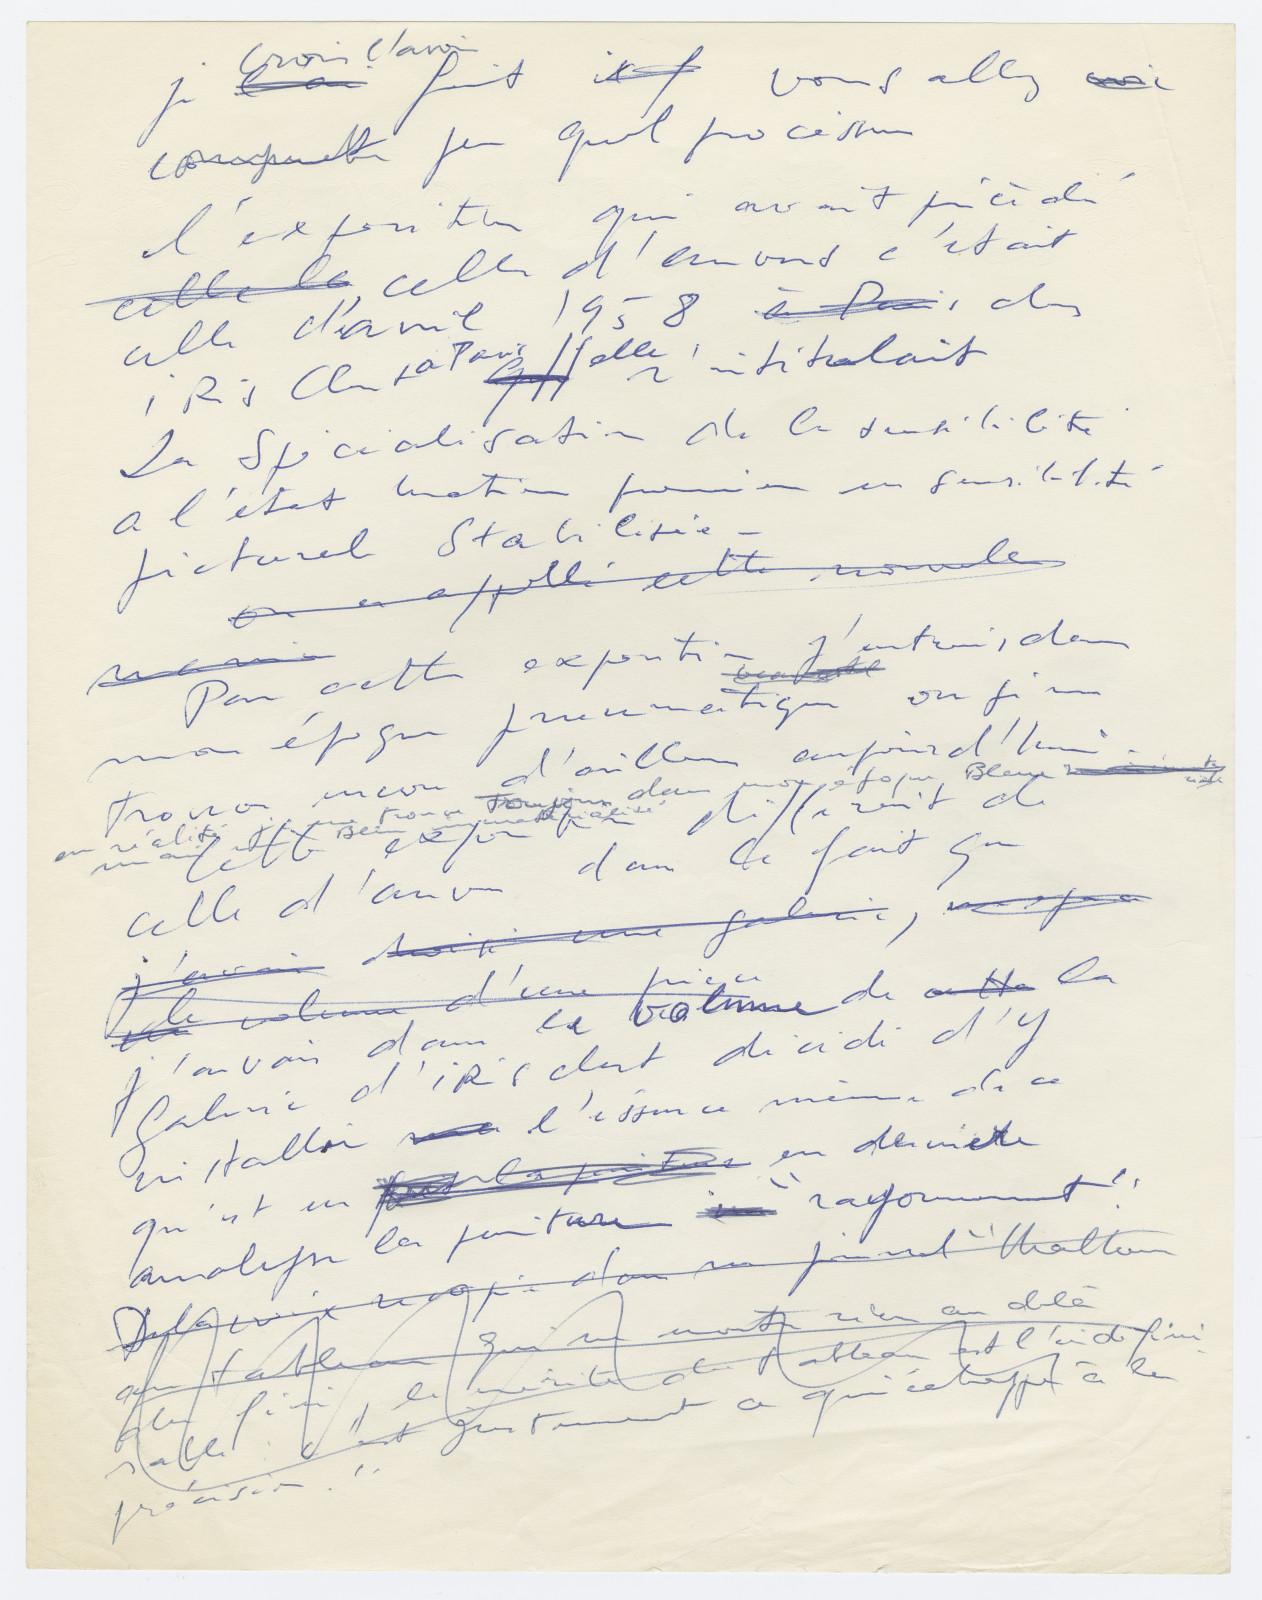 croi l'avoi
je fait vous allez voir
comprendre par quel processus
l'exposition qui avait précédé
celle la celle d'anvers c'était
celle d'avril 1958 à Paris, chez
iRis Clert à Paris elle s'intitulait
La Spécialisation de la sensibilité
a l'état matière première en sensibilité
pictural Stabilisée -
on a appellé cette nouvelle
Par cette exposition j'entrais dans
mon époque pneumatique ou je me
trouve encore d'ailleurs aujourd'hui.
en réalité je me trouve toujours dans mon époque Bleue
mais Bleu immatérialisé
Cette exposition différait de
celle d'anvers dans le fait que
j'avais choisi une galerie,
le volume d'une pièce
j'avais dans le volume de cette la
Galerie d'iRis clert décidé d'y
installer l'éssence même de ce
qu'est en pour la peinture en dernière
analyse la peinture "rayonnement"!
Delacroix dans son journal "Malheur
au tableau qui ne montre rien au delà
du fini, le mérite du tableau est l'indéfini-
ssable : c'est justement ce qui échappe à la
précision."